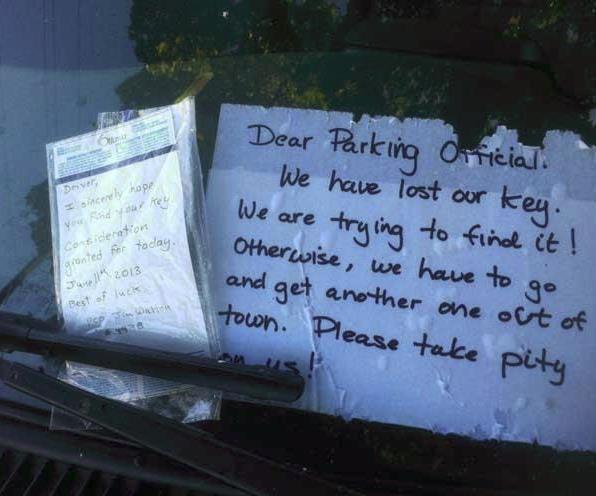 Driver,
I sincerely hope
you find your key.
Consideration
granted for today.
June 11th, 2013
Best of luck.
Dear Parking Official.
We have lost our key.
We are trying to find it!
Otherwise, we have to go
and get another one out of
town. Please take pity
on us!